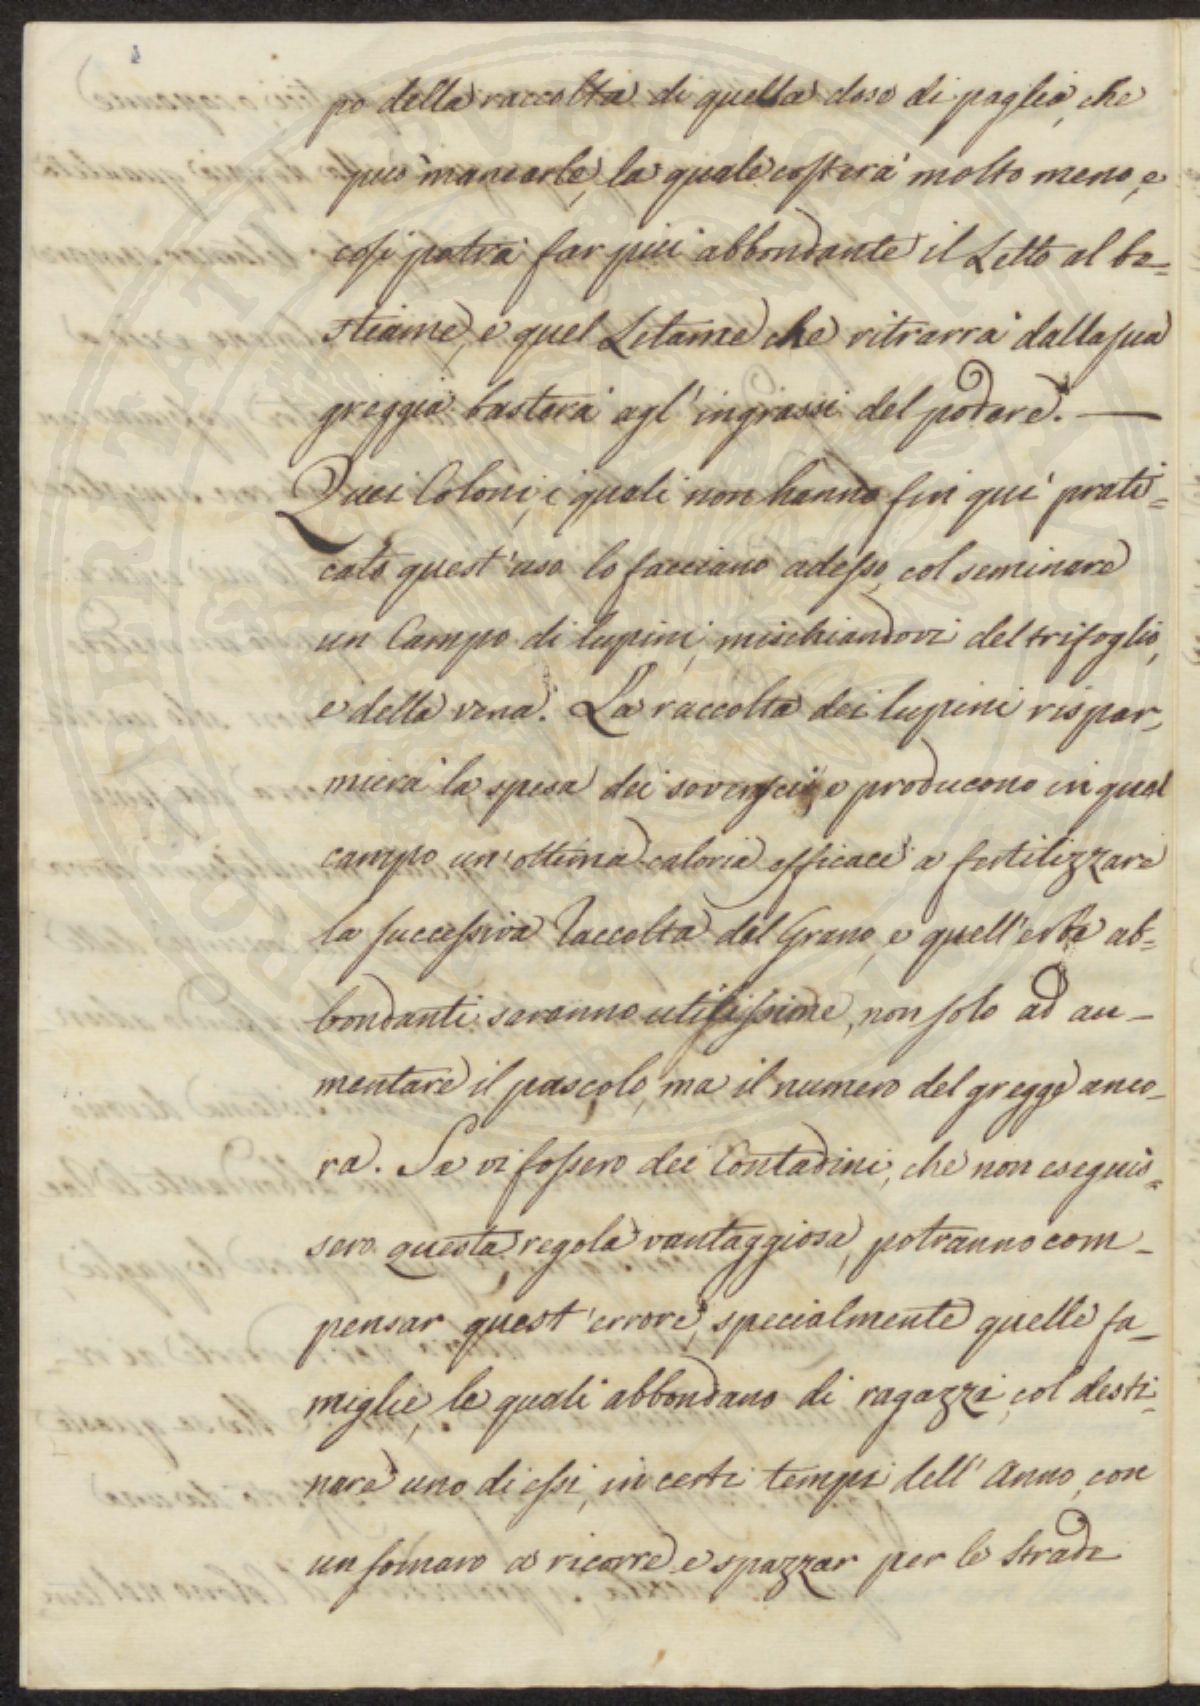 po della raccolta di quella dose di paglia, che
può mancarle, la quale costerà molto meno, e
così potrà far più abbondante il Letto al be=
stiame, e quel Letame che ritrarrà dalla sua
greggia basterà agl'ingrassi del podere. —
Quei Coloni, i quali non hanno fin quì prati=
cato quest'uso lo facciano adesso, col seminare
un Campo di lupini, mischiandovi del trifoglio,
e della vena. La raccolta dei lupini rispar=
mierà la spesa dei sovesci, e producono in quel
campo un'ottima caloria efficace a fertilizzare
la successiva raccolta del Grano, e quell'erbe ab=
bondanti saranno utilissime, non solo ad au=
mentare il pascolo, ma il numero del gregge anco=
ra. Se vi fossero dei Contadini, che non eseguis=
sero questa regola vantaggiosa, potranno com=
pensar quest'errore, specialmente quelle fa=
miglie, le quali abbondano di ragazzi, col desti=
nare uno di essi, in certi tempi dell'Anno, con
un somaro a ricorre, e spazzar per le Strade